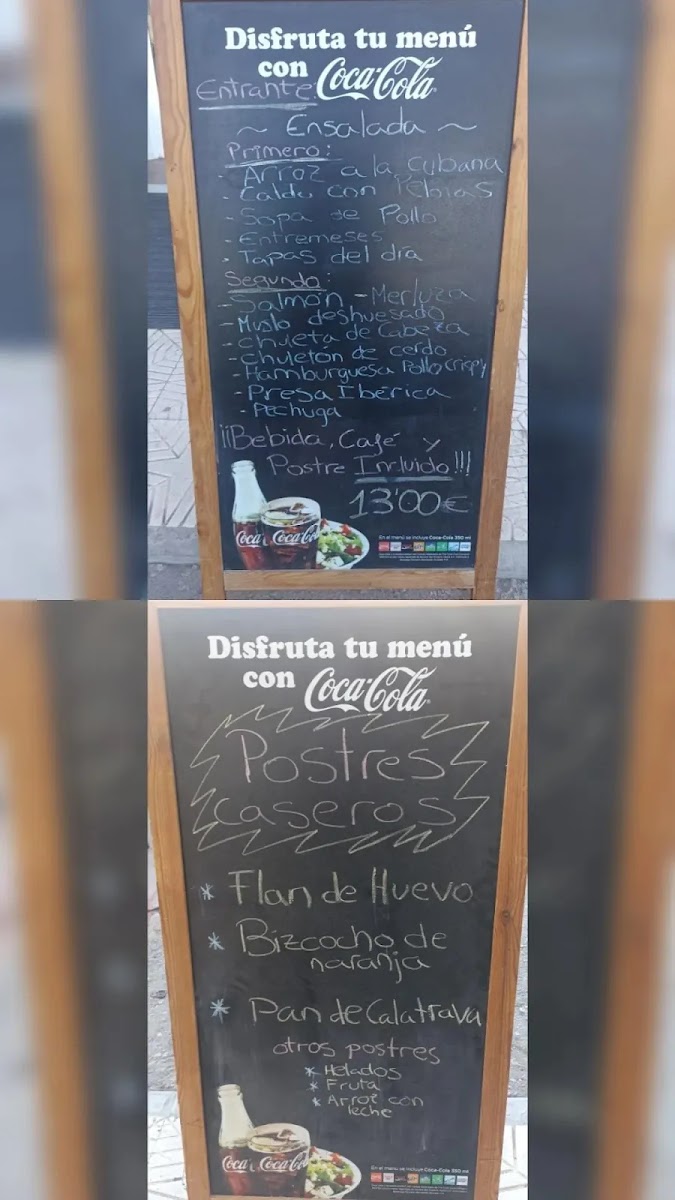 Disfruta tu menú
con Coca-Cola
Entrante:
~ Ensalada ~
Primero:
- Arroz a la cubana
- Caldo con Pelotas
- Sopa de Pollo
- Entremeses
- Tapas del día
Segundo:
- Salmón - Merluza
- Muslo deshuesado
- chuleta de Cabeza
- chuletón de cerdo
- Hamburguesa Pollo crispy
- Presa Ibérica
- Pechuga
¡¡Bebida, Café y
Postre Incluido!!!
13'00€
Coca-Cola
En el menú se incluye Coca-Cola 350 ml
Disfruta tu menú
con Coca-Cola
Postres
caseros
* Flan de Huevo
* Bizcocho de
naranja
* Pan de Calatrava
otros postres
* Helados
* Fruta
* Arroz con
leche
Coca-Cola
En el menú se incluye Coca-Cola 350 ml